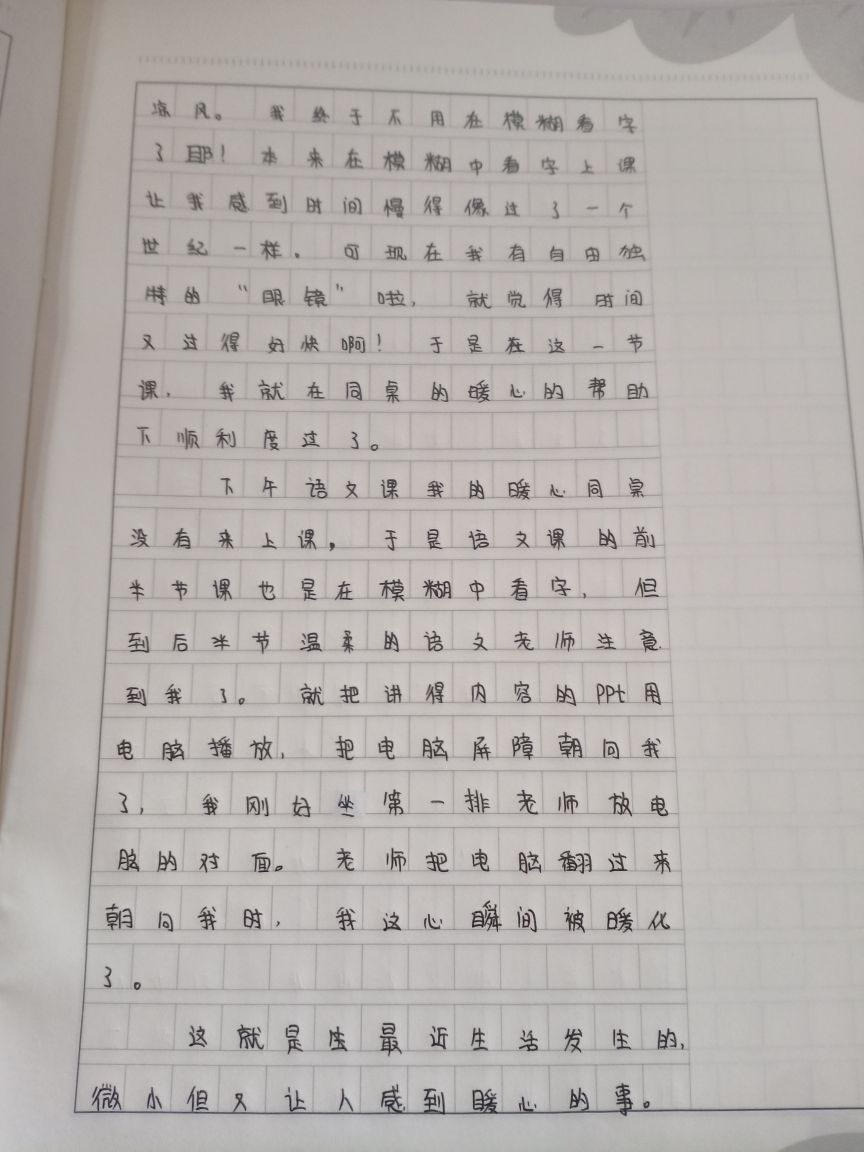 凉风。我终于不用在模糊看字
了耶！本来在模糊中看字上课
让我感到时间慢得像过了一个
世纪一样。可现在我有自由独
特的“眼镜”啦，就觉得时间
又过得好快啊！于是在这一节
课，我就在同桌的暖心的帮助
下顺利度过了。
下午语文课我的暖心同桌
没有来上课，于是语文课的前
半节课也是在模糊中看字，但
到后半节温柔的语文老师注意
到我了。就把讲得内容的PPt用
电脑播放，把电脑屏障朝向我
了，我刚好坐第一排老师放电
脑的对面。老师把电脑翻过来
朝向我时，我这心瞬间被暖化
了。
这就是最近生活发生的，
微小但又让人感到暖心的事。